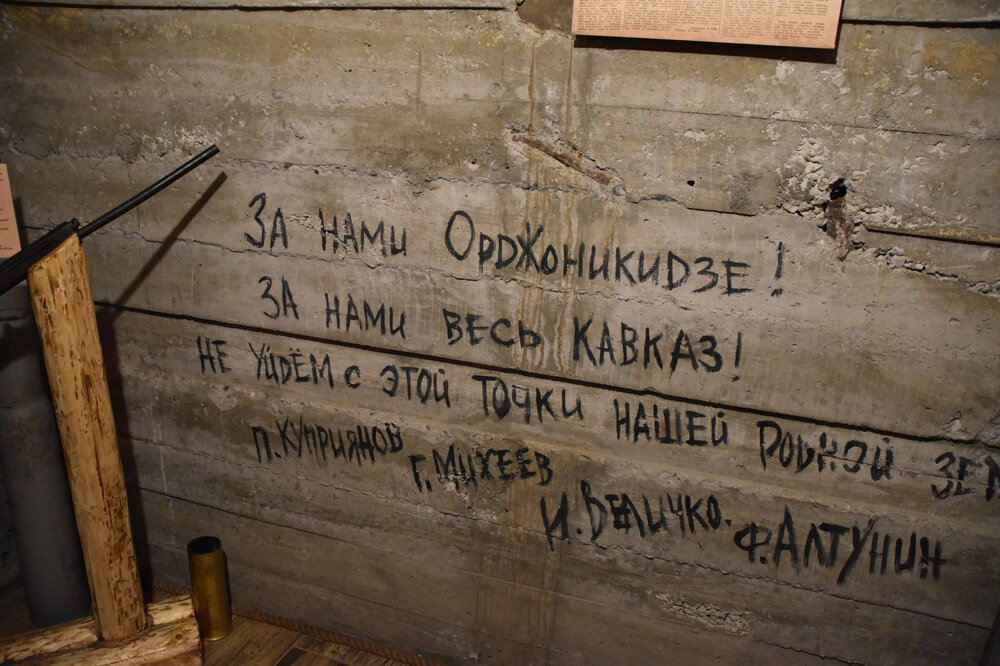 За нами Орджоникидзе!
За нами весь Кавказ!
Не уйдём с этой точки нашей родной зем
П. Куприянов
Г. Михеев
И. Величко.
Ф. Алтунин